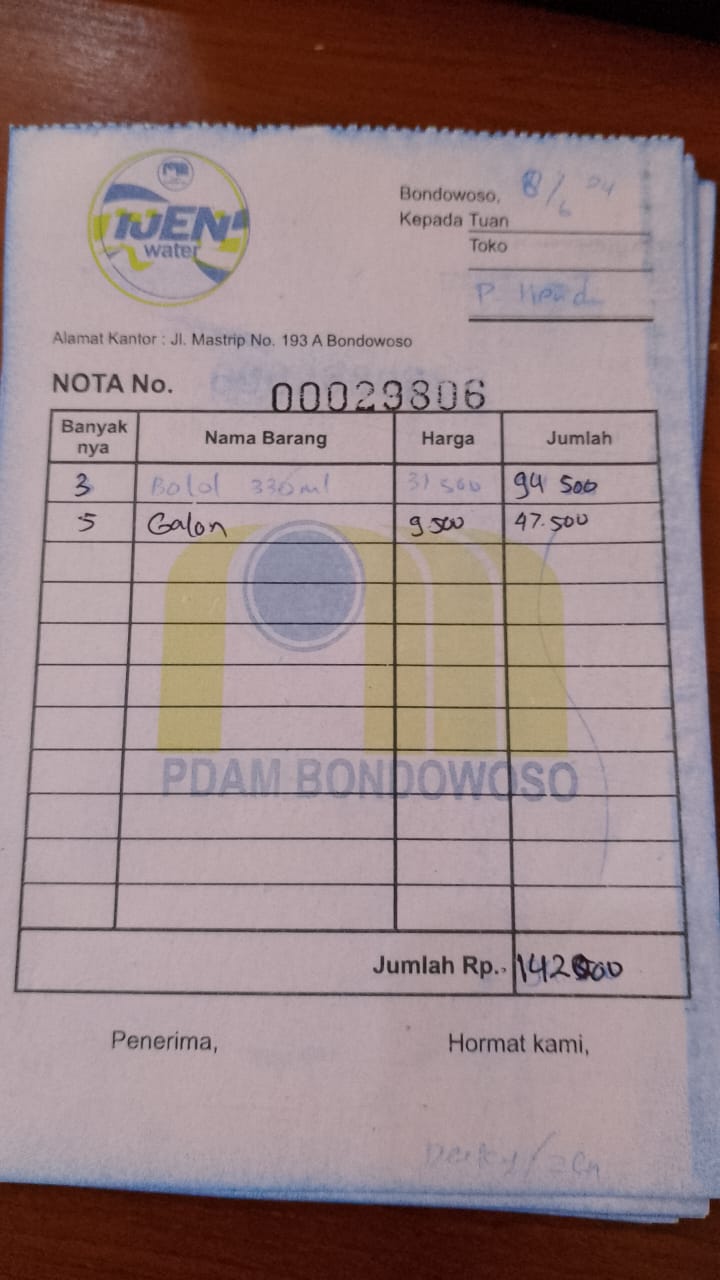 IJEN
water
Bondowoso, 8/6 24
Kepada Tuan
Toko
P. Hendi
Alamat Kantor : Jl. Mastrip No. 193 A Bondowoso
NOTA No. 00029806
Banyak nya Nama Barang Harga Jumlah
3 Botol 330 ml 31 500 94 500
5 Galon 9 500 47.500
PDAM BONDOWOSO
Jumlah Rp. 142000
Penerima, Hormat kami,